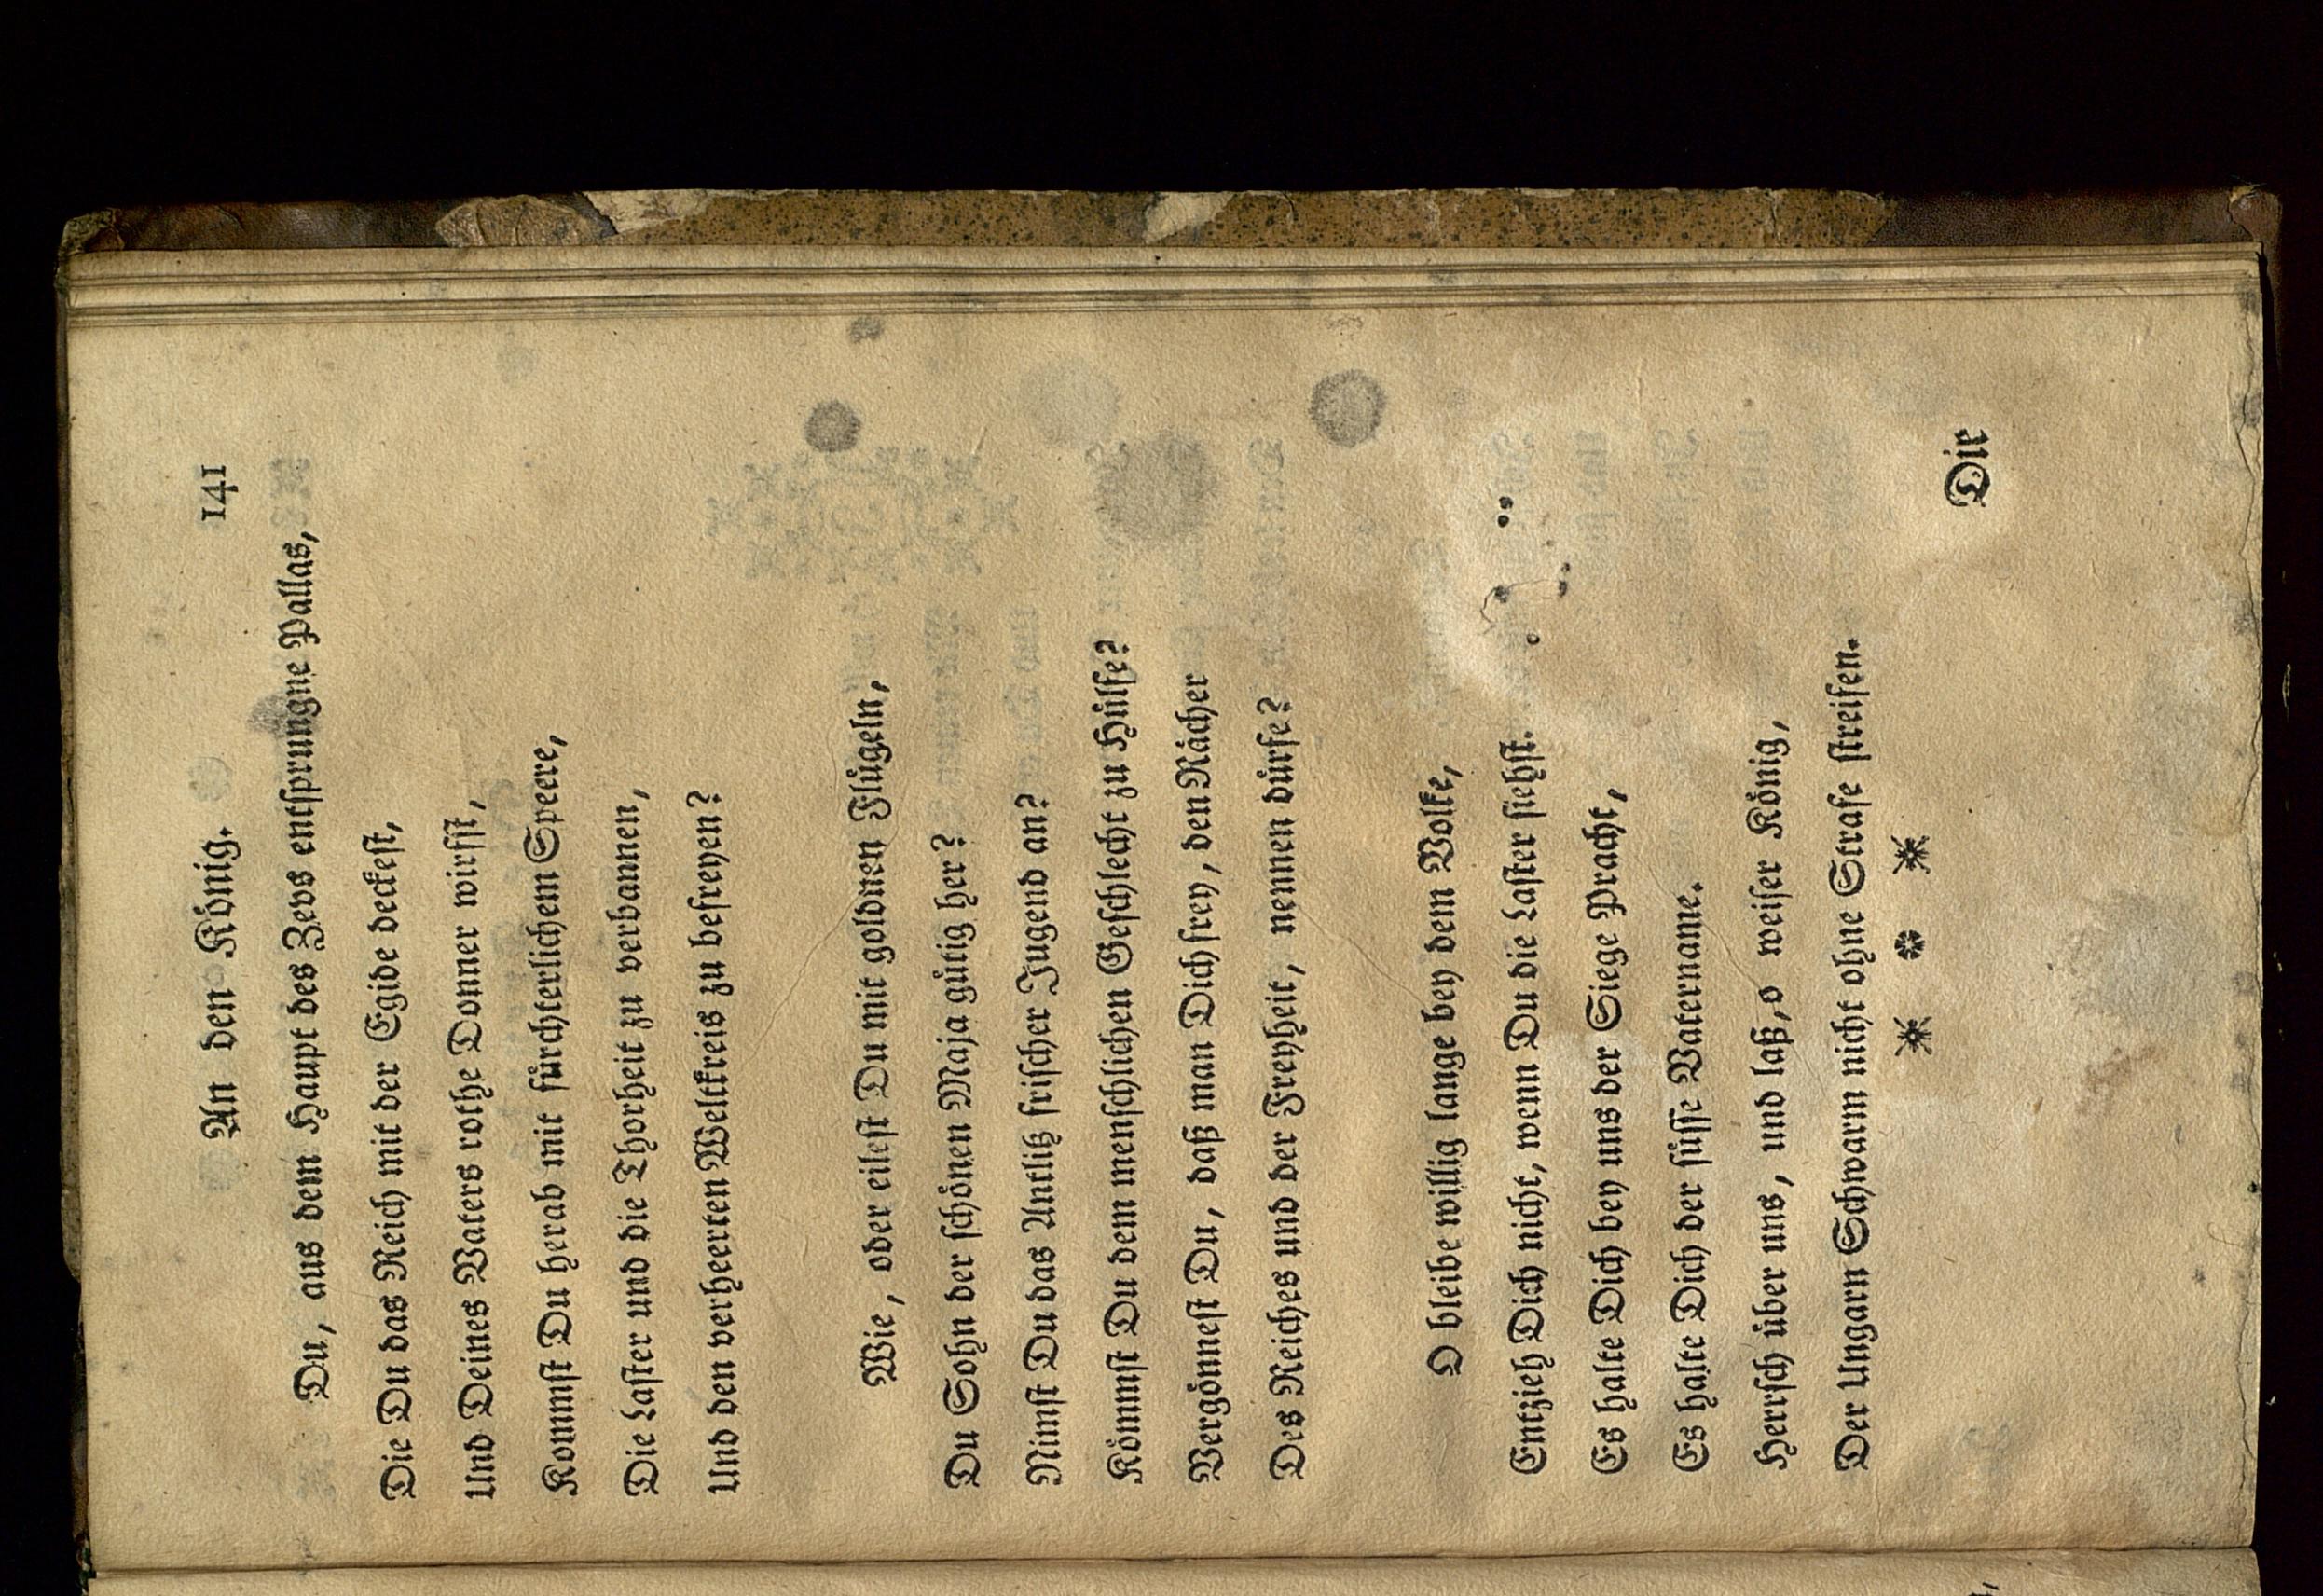 An den König. 141
Du, aus dem Haupt des Zevs entsprungne Pallas,
Die Du das Reich mit der Egide deckest,
Und Deines Vaters rothe Donner wirfst,
Kommst Du herab mit fürchterlichem Speere,
Die Laster und die Thorheit zu verbannen,
Und den verheerten Weltkreis zu befreyen?
Wie, oder eilest Du mit goldnen Flügeln,
Du Sohn der schönen Maja gütig her?
Nimst Du das Antlitz frischer Jugend an?
Kömmst Du dem menschlichen Geschlecht zu Hülfe?
Vergönnest Du, daß man Dich frey, den Rächer
Des Reiches und der Freyheit, nennen dürfe?
O bleibe willig lange bey dem Volke,
Entzieh Dich nicht, wenn Du die Laster siehst.
Es halte Dich bey uns der Siege Pracht,
Es halte Dich der süsse Vatername.
Herrsch über uns, und laß, o weiser König,
Der Ungarn Schwarm nicht ohne Strafe streifen.
Die